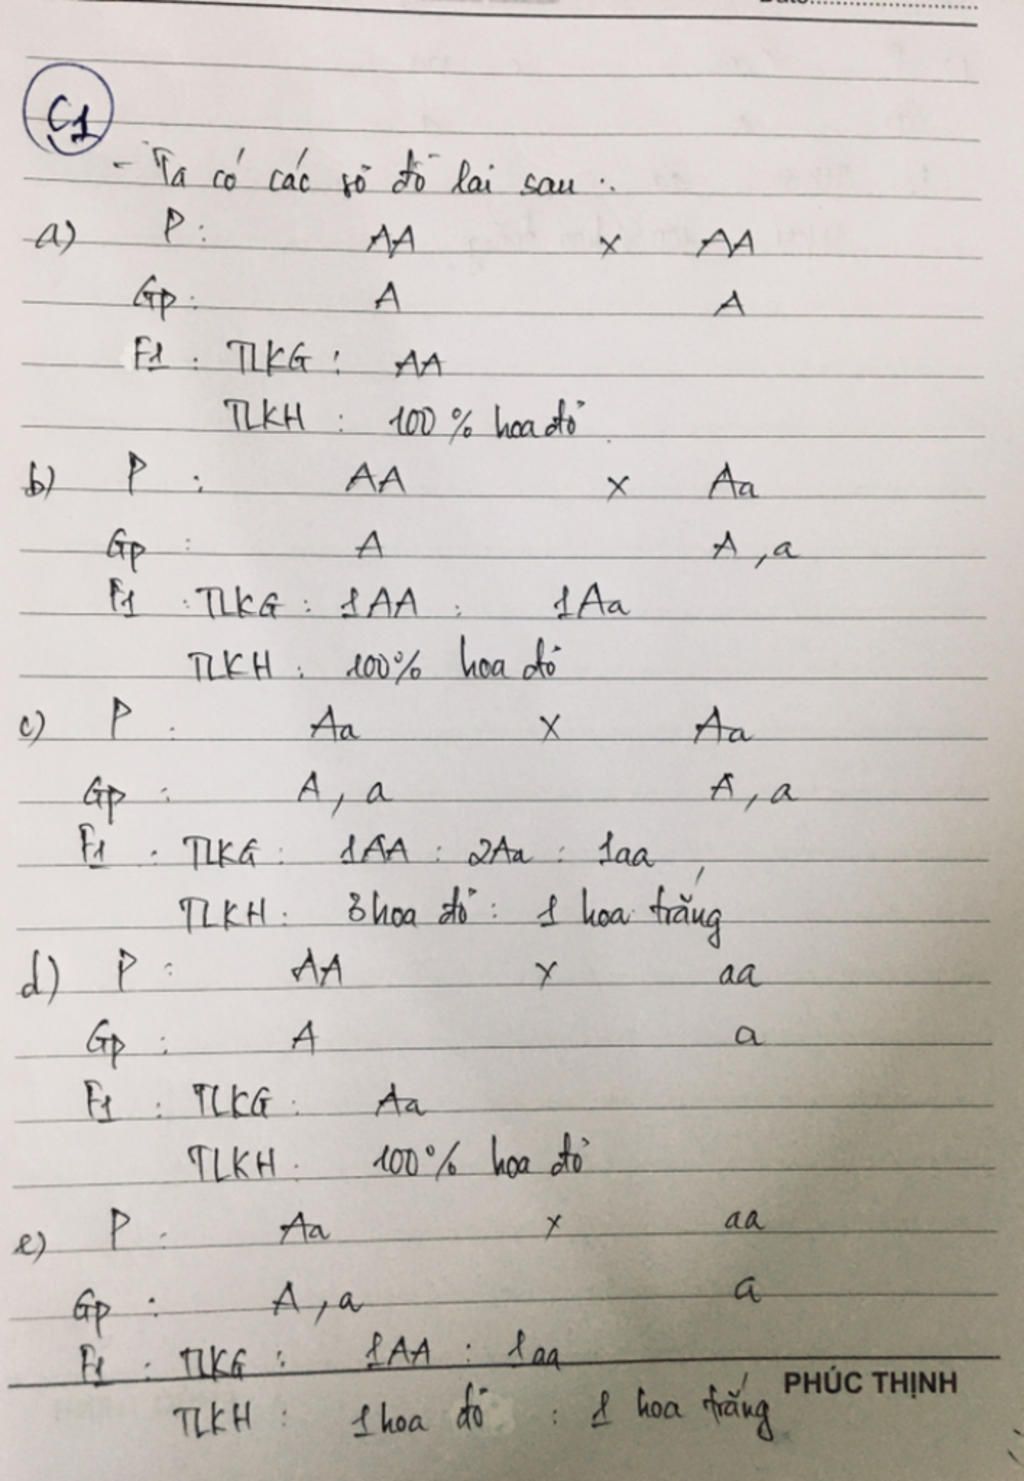 C1
- Ta có các sơ đồ lai sau :
a) P : AA x AA
Gp : A A
F1 : TLKG : AA
TLKH : 100% hoa đỏ
b) P : AA x Aa
Gp : A A, a
F1 : TLKG : 1AA : 1Aa
TLKH : 100% hoa đỏ
c) P : Aa x Aa
Gp : A, a A, a
F1 : TLKG : 1AA : 2Aa : 1aa
TLKH : 3 hoa đỏ : 1 hoa trắng
d) P : AA x aa
Gp : A a
F1 : TLKG : Aa
TLKH : 100% hoa đỏ
e) P : Aa x aa
Gp : A, a a
F1 : TLKG : 1AA : 1aa
PHÚC THỊNH
TLKH : 1 hoa đỏ : 1 hoa trắng